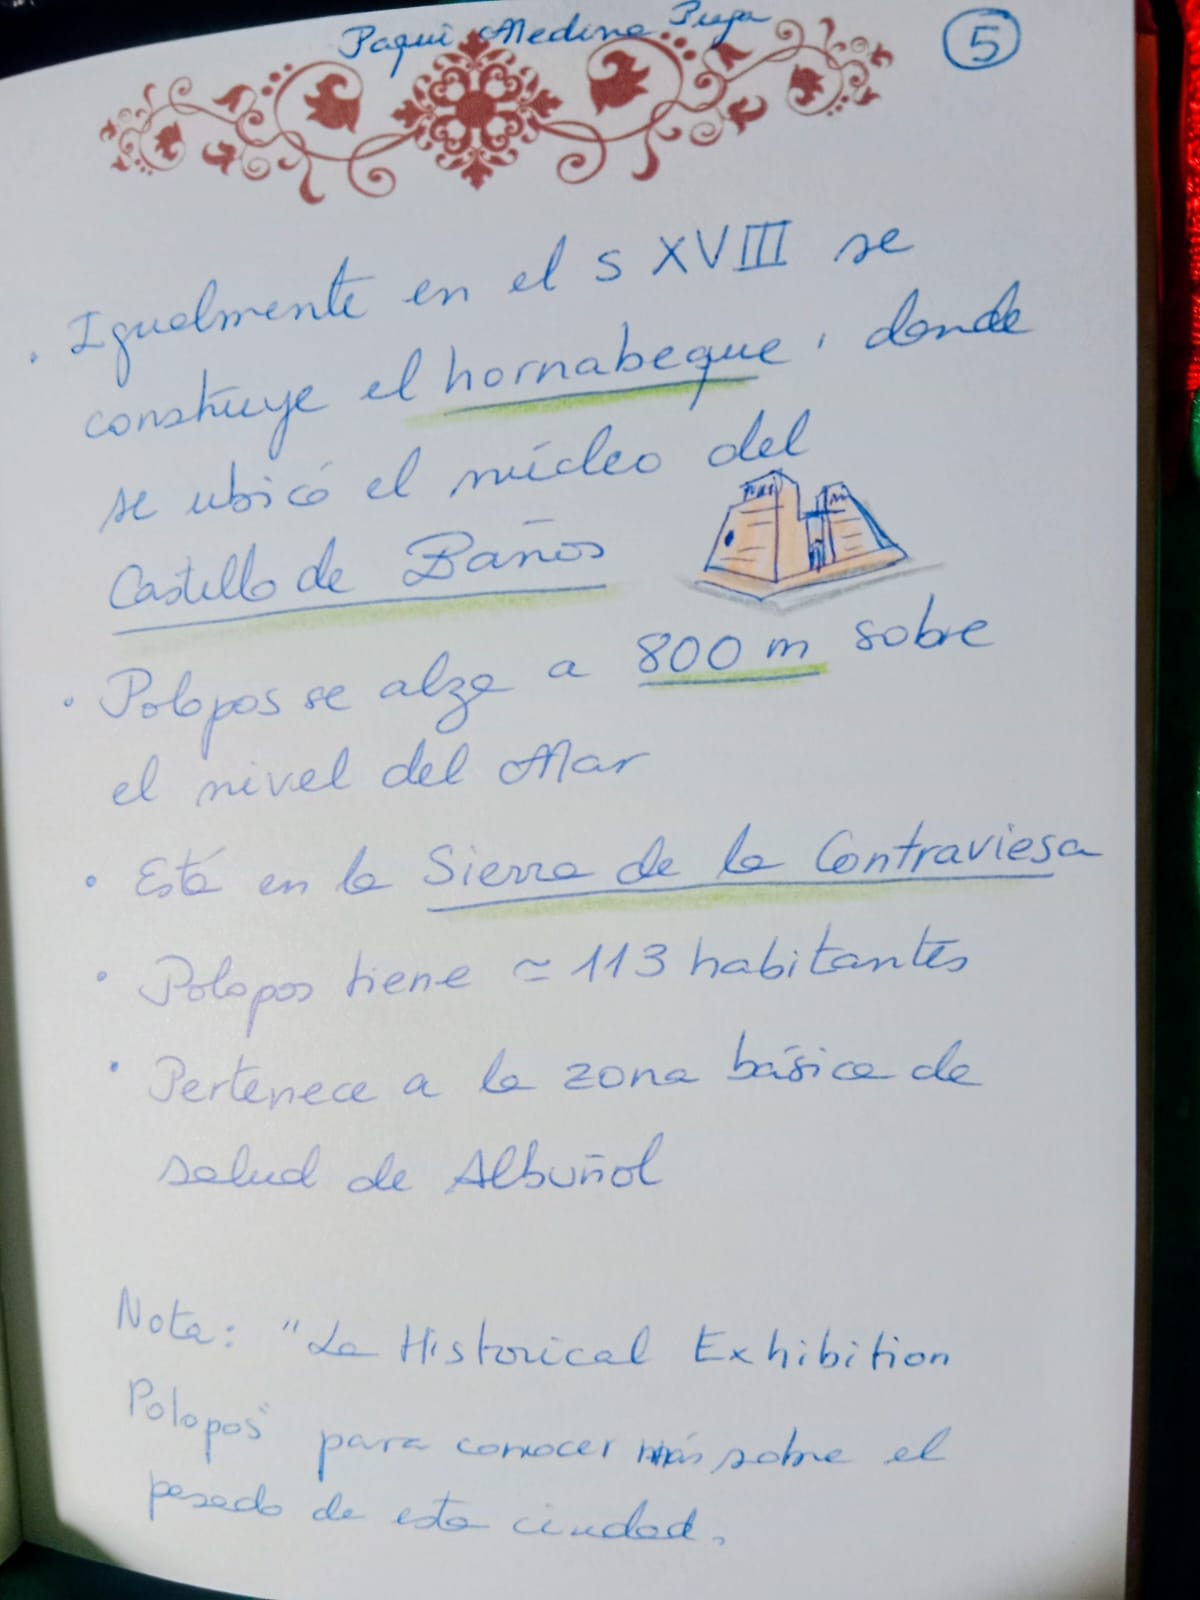 Paqui Medina Puga
5
· Igualmente en el s XVIII se
construye el hornabeque, donde
se ubicó el núcleo del
Castillo de Baños
· Polopos se alza a 800 m sobre
el nivel del Mar
· Está en la Sierra de la Contraviesa
· Polopos tiene ≃ 113 habitantes
· Pertenece a la zona básica de
salud de Albuñol
Nota: "La Historical Exhibition
Polopos" para conocer más sobre el
pasado de esta ciudad.